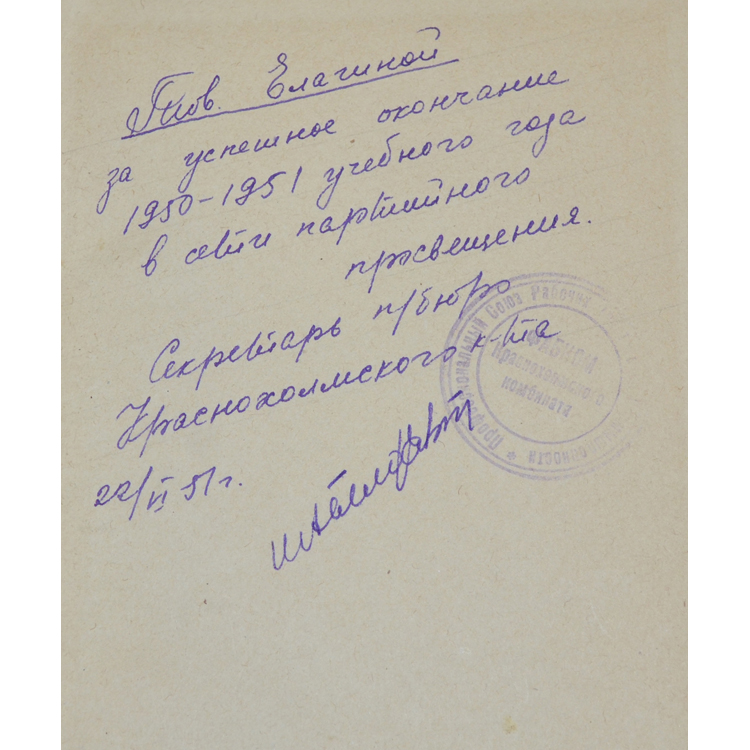 Тов. Елагиной
за успешное окончание
1950-1951 учебного года
в сети партийного
просвещения.
Секретарь п/бюро
Краснохолмского к-та
22/VI 51 г.
Профессиональный Союз Рабочих
ФАБКОМ
Краснохолмского